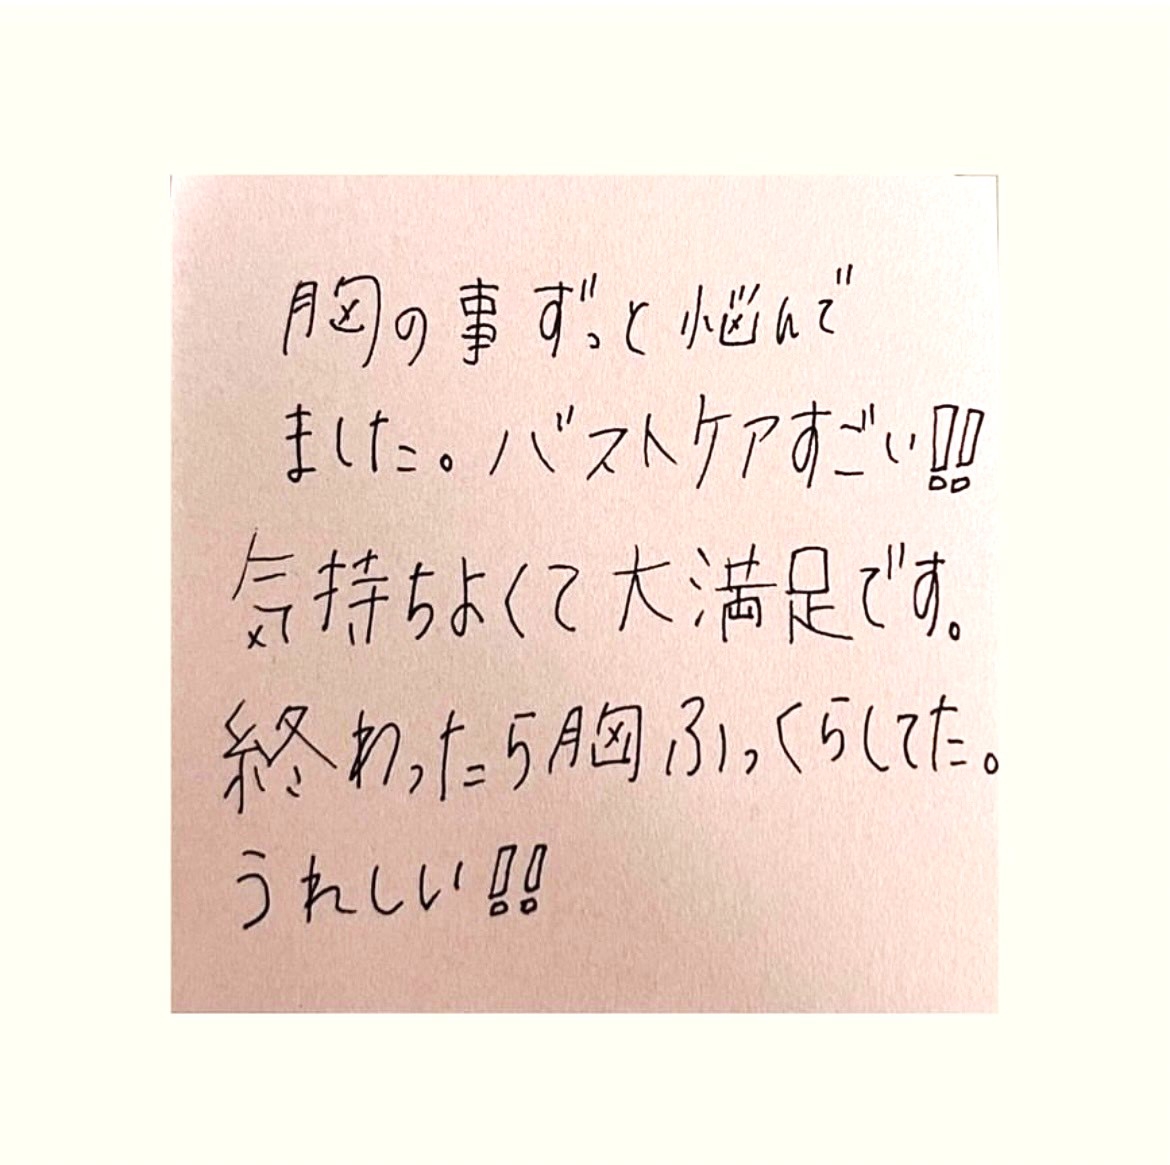 胸の事ずっと悩んで
ました。バストケアすごい!!
気持ちよくて大満足です。
終わったら胸ふっくらしてた。
うれしい!!